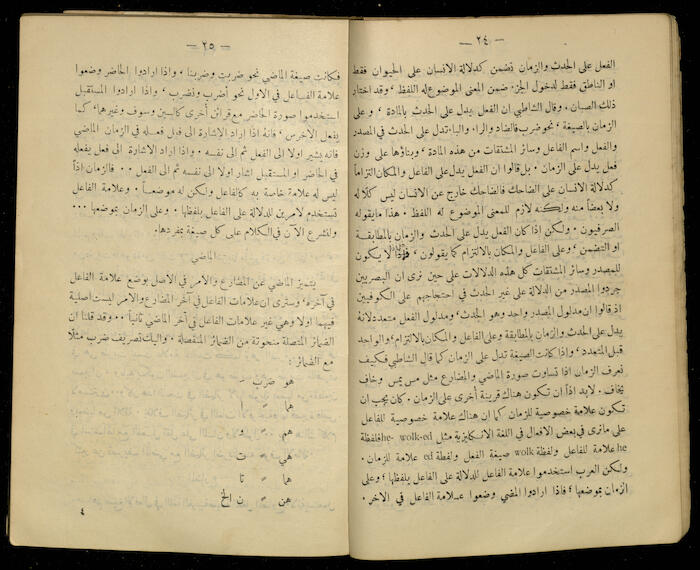 — ٢٤ —
الفعل على الحدث والزمان تضمن كدلالة الانسان على الحيوان فقط
او الناطق فقط لدخول الجزء ضمن المعنى الموضوع له اللفظ ، وقد اختار
ذلك الصبان . وقال الشاطبي ان الفعل يدل على الحدث بالمادة ، وعلى
الزمان بالصيغة ، نحو ضرب فالضاد والراء والباء تدل على الحدث في المصدر
والفعل واسم الفاعل وسائر المشتقات من هذه المادة ، وبناؤها على وزن
فعل يدل على الزمان . بل قالوا ان الفعل يدل على الفاعل والمكان التزاماً
كدلالة الانسان على الضاحك فالضاحك خارج عن الانسان ليس كلًا له
ولا بعضاً منه ولكنه لازم للمعنى الموضوع له اللفظ . هذا ما يقوله
الصرفيون . ولكن إذا كان الفعل يدل على الحدث والزمان بالمطابقة
او التضمن ، وعلى الفاعل والمكان بالالتزام كما يقولون ، فلماذا لا يكون
للمصدر وسائر المشتقات كل هذه الدلالات على حين نرى ان البصريين
جردوا المصدر من الدلالة على غير الحدث في احتجاجهم على الكوفيين
اذ قالوا ان مدلول المصدر واحد وهو الحدث، ومدلول الفعل متعدد لانه
يدل على الحدث والزمان بالمطابقة وعلى الفاعل والمكان بالالتزام، والواحد
قبل المتعدد ، واذا كانت الصيغة تدل على الزمان كما قال الشاطبي فكيف
نعرف الزمان اذا تساوت صورة الماضي والمضارع مثل مس يمس وخاف
يخاف . لابد اذاً ان تكون هناك قرينة أخرى على الزمان . كان يجب ان
تكون علامة خصوصية للزمان كما ان هناك علامة خصوصية للفاعل
على مانرى في بعض الافعال في اللغة الانكليزية مثل he- wolk-ed فلفظة
he علامة للفاعل ولفظة wolk صيغة الفعل ولفظة ed علامة للزمان .
ولكن العرب استخدموا علامة الفاعل للدلالة على الفاعل بلفظها ، وعلى
الزمان بموضعها ، فاذا ارادوا المضي وضعوا علامة الفاعل في الاخر .
— ٢٥ —
فكانت صيغة الماضي نحو ضربت وضربنا ، واذا ارادوا الحاضر وضعوا
علامة الفاعل في الاول نحو أضرب ونضرب ، واذا ارادوا المستقبل
استخدموا صورة الحاضر مع قرائن أخرى كالسين وسوف وغيرها، كما
يفعل الأخرس ، فانه اذا اراد الاشارة الى فعل فعله في الزمان الماضي
فانه يشير اولا الى الفعل ثم الى نفسه . واذا اراد الاشارة الى فعل يفعله
في الحاضر او المستقبل اشار اولا الى نفسه ثم الى الفعل . . فالزمان اذاً
ليس له علامة خاصة به كالفاعل ولكن له موضعاً . وعلامة الفاعل
تستخدم لامرين للدلالة على الفاعل بلفظها . وعلى الزمان بموضعها . . .
ولنشرع الآن في الكلام على كل صيغة بمفردها .
الماضي
يتميز الماضي عن المضارع والامر في الاصل بوضع علامة الفاعل
في آخره ، وسنرى ان علامات الفاعل في آخر المضارع والامر ليست اصلية
فيهما اولا وهي غير علامات الفاعل في آخر الماضي ثانياً . . وقد قلنا ان
الضمائر المتصلة منحوتة من الضمائر المنفصلة . واليك تصريف ضرب مثلًا
مع الضمائر
هو ضرب َ
هما » ا
هم » و
هي » ت
هما » تا
هن » ن الخ
٤